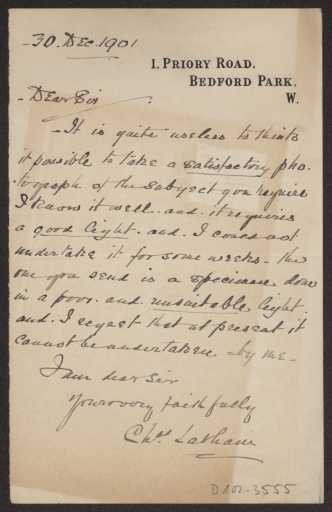 30. Dec. 1901
1. PRIORY ROAD.
BEDFORD PARK.
W.
Dear Sir
It is quite useless to think
it possible to take a satisfactory pho-
tograph of the subject you require
I know it well. and. it requires
a good light. and. I could not
undertake it for some weeks. the
one you send is a specimen done
in a poor. and. unsuitable light.
and. I regret that at present it
cannot be undertaken by me-
I am dear Sir
Yours very faithfully
Chs. Latham
D102-3555